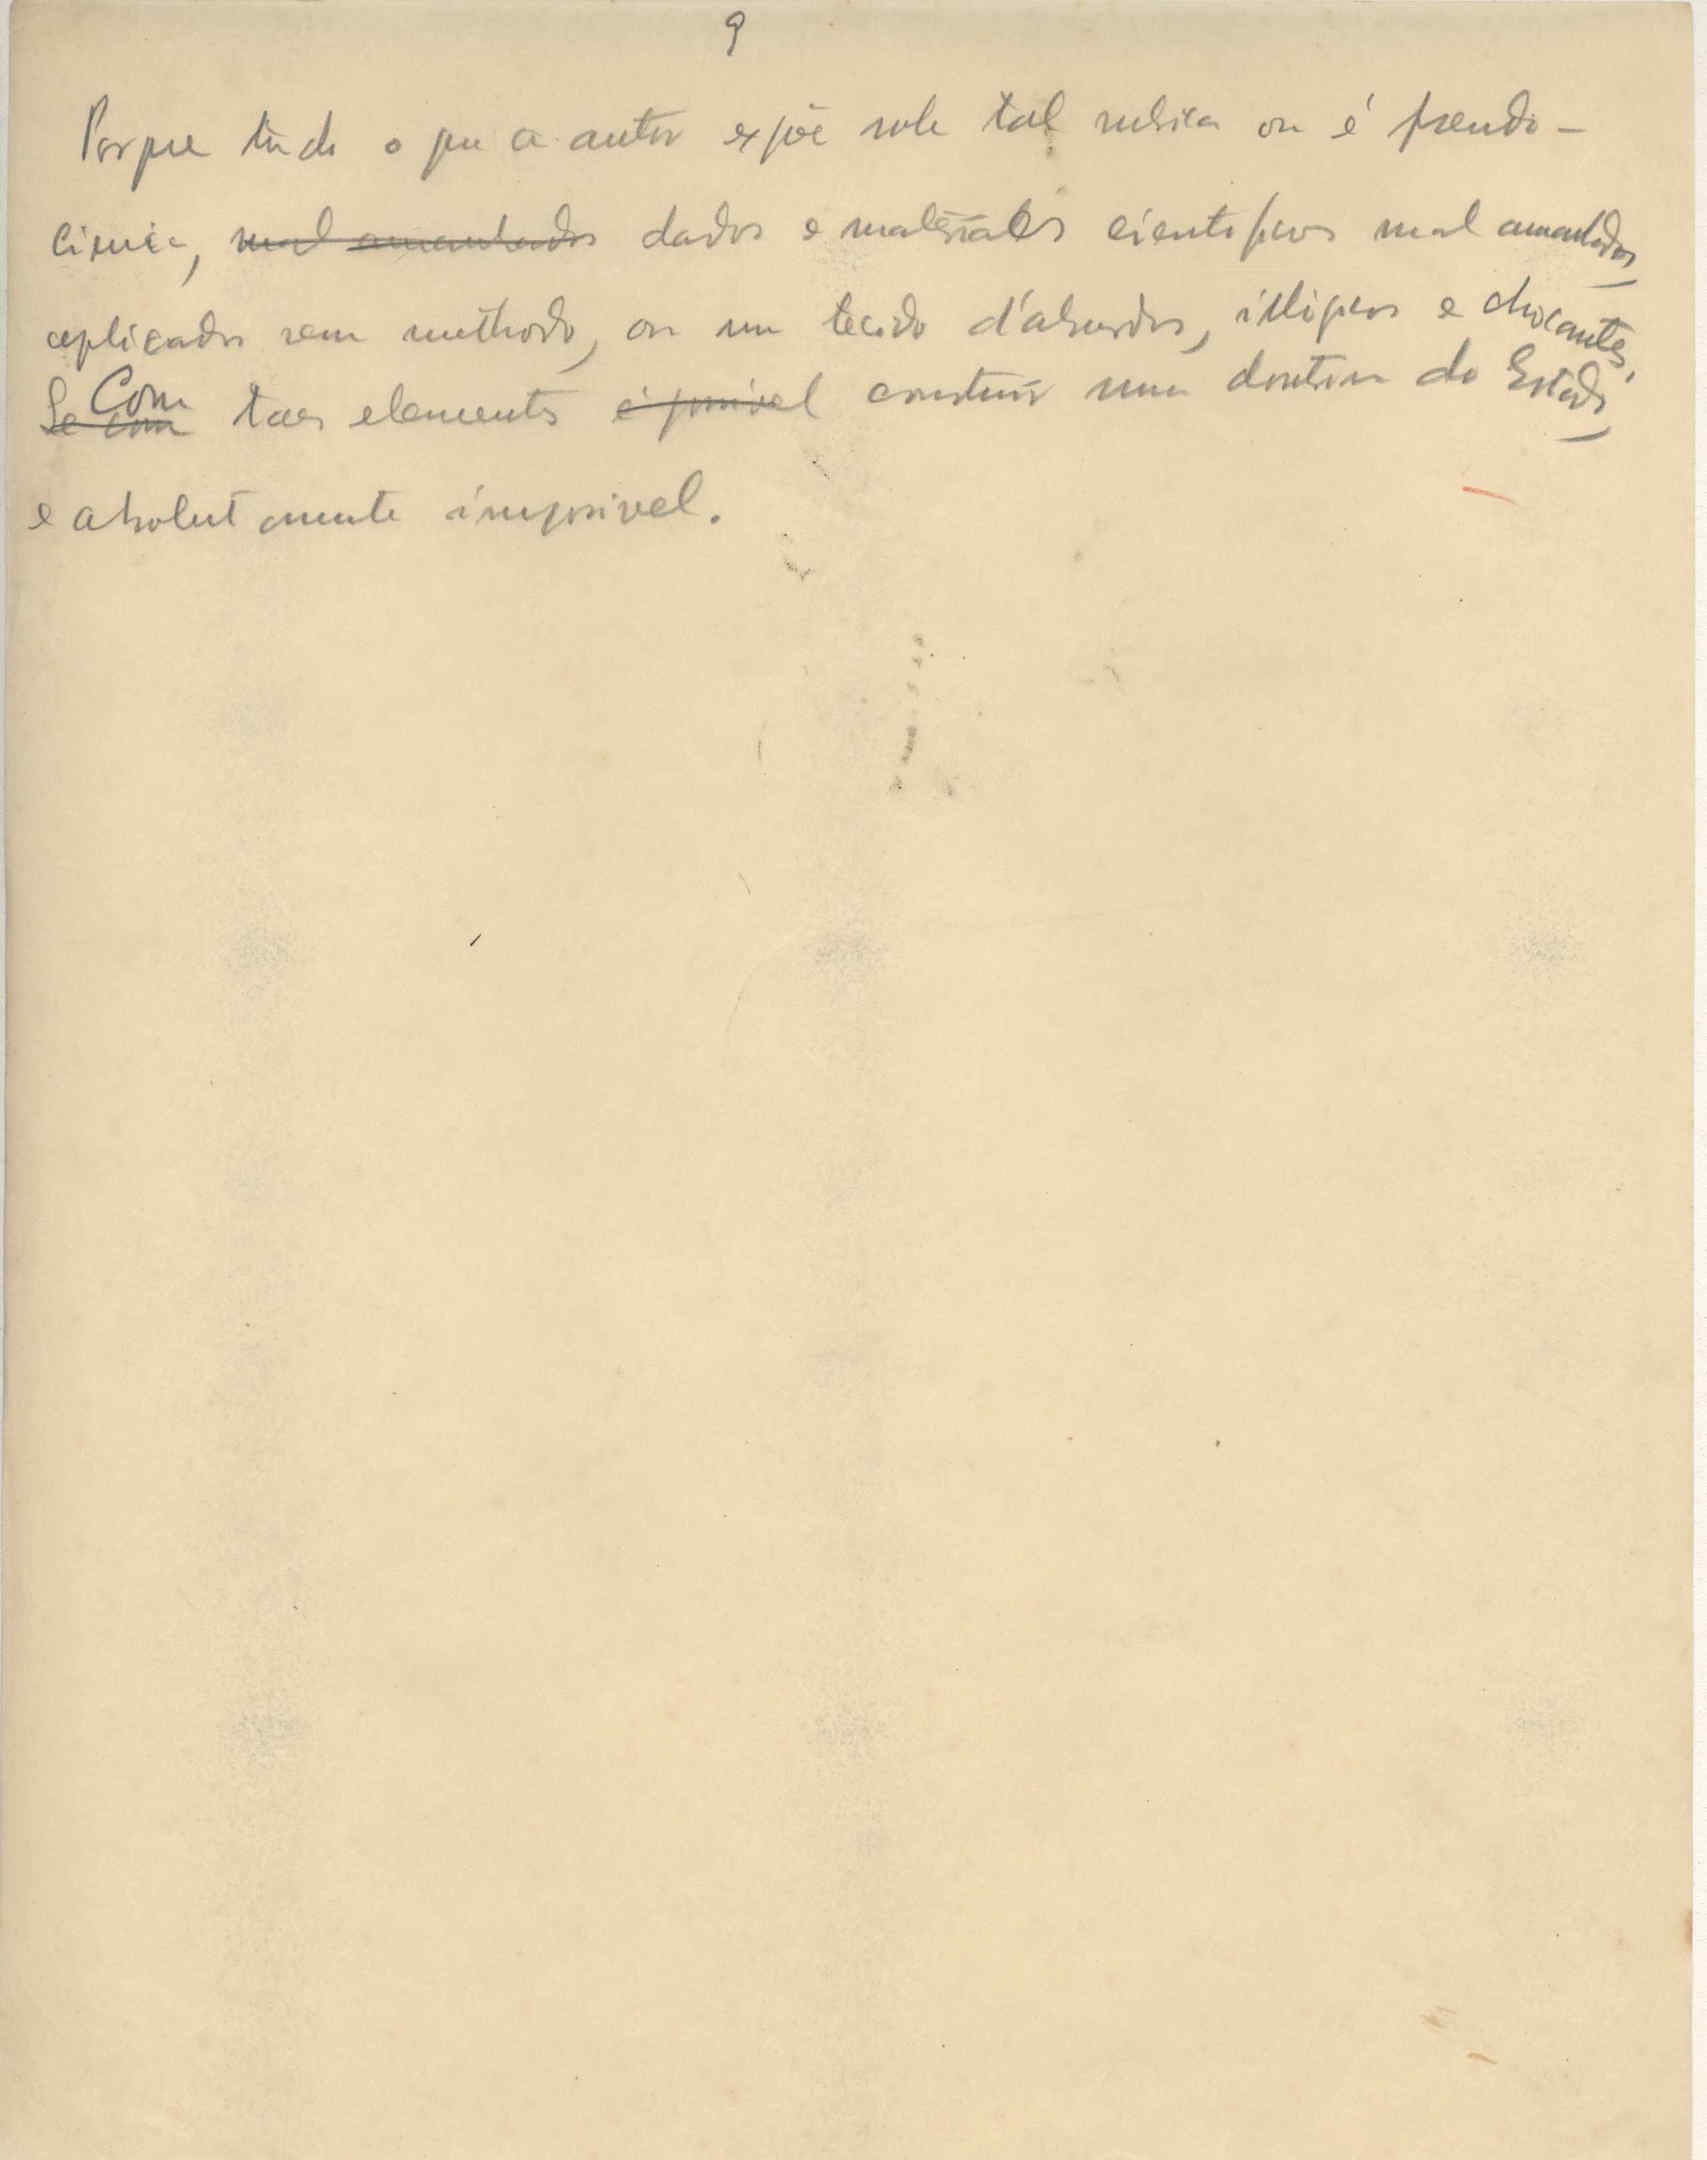 9
Porque tudo o que o autor expõe sob tal rubrica ou é pseudo-
ciencia, mal amanhados dados e materiales cientificos mal amanhados,
aplicados sem methodo, ou um tecido d'absurdos, illogicos e chocantes.
Se com Com taes elementos é possivel construir uma doutrina do Estado,
é absolutamente impossivel.